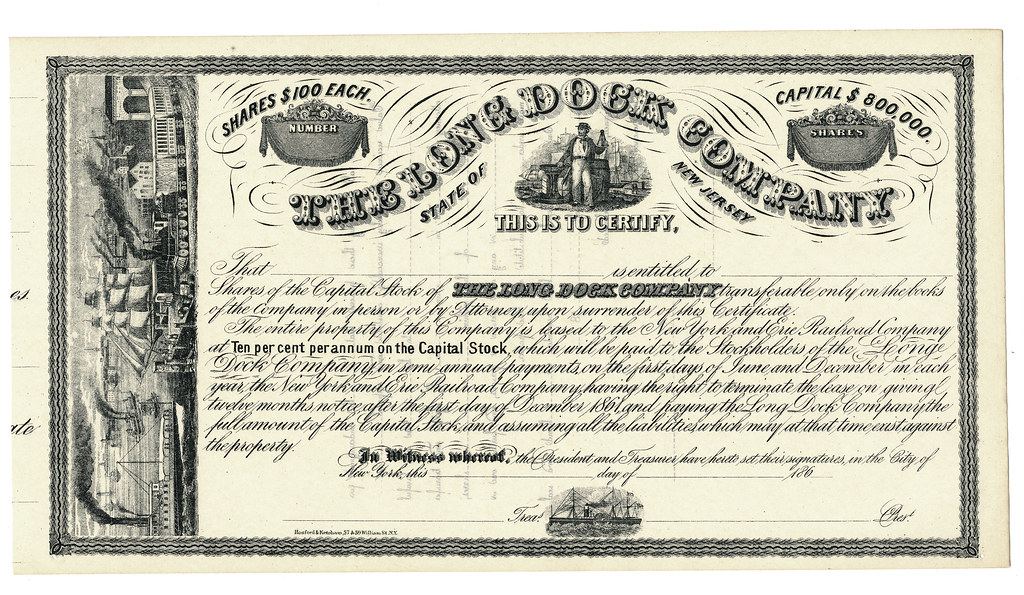 SHARES $100 EACH.
CAPITAL $800,000.
NUMBER
SHARES
THE LONG DOCK COMPANY
STATE OF NEW JERSEY
THIS IS TO CERTIFY,
That is entitled to
Shares of the Capital Stock of THE LONG DOCK COMPANY transferable only on the books
of the Company in person or by Attorney upon surrender of this Certificate.
The entire property of this Company is leased to the New York and Erie Railroad Company
at Ten per cent per annum on the Capital Stock, which will be paid to the Stockholders of the Long
Dock Company, in semi-annual payments, on the first days of June and December in each
year, the New York and Erie Railroad Company, having the right to terminate the lease on giving
twelve months notice after the first day of December 1861, and paying the Long Dock Company, the
full amount of the Capital Stock, and assuming all the liabilities which may at that time exist against
the property.
In Witness whereof, the President and Treasurer, have hereto set their signatures, in the City of
New York, this day of 186
Treas. Prest.
Hosford & Ketcham, 57 & 59 William St. N.Y.
es.
ate